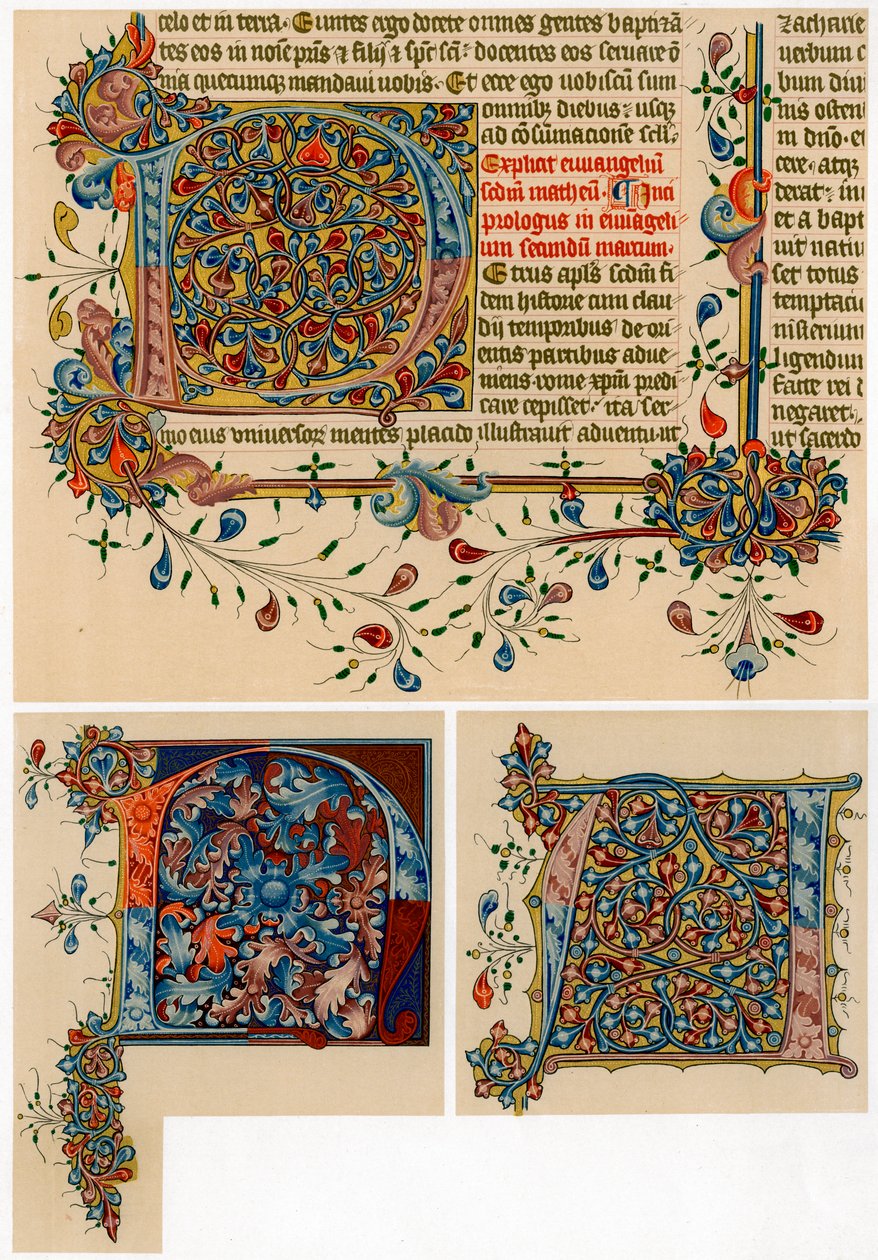 celo et in terra. Euntes ergo docete omnes gentes baptizā
tes eos in noīe pr̄is ⁊ filij ⁊ sp̄c sc̄i: docentes eos seruare ō
nia quecumq mandaui uobis. Et ecce ego uobiscū sum
omnibꝫ diebus: usqꝫ
ad cōsumacionē scl̄i.
Explicit euuangeliū
scdm̄ matheū. Inci
prologus in euūageli
um secundū marcum.
Etrus apl̄s scdm̄ fi
dem historie cum clau
dij temporibus de ori
entis partibus adue
niens rome xp̄m predi
care cepisset: ita ser
mo eius vniuersoꝝ mentes placido illustrauit aduentu. ut
Zacharie
uerbum c
bum diui
nis osten
in dn̄o. et
cere. atqꝫ
derat. in
et a bapt
uit natiu
set totus
temptacu
nisterium
ligendum
facte rei
negaret.
ut sacerdo